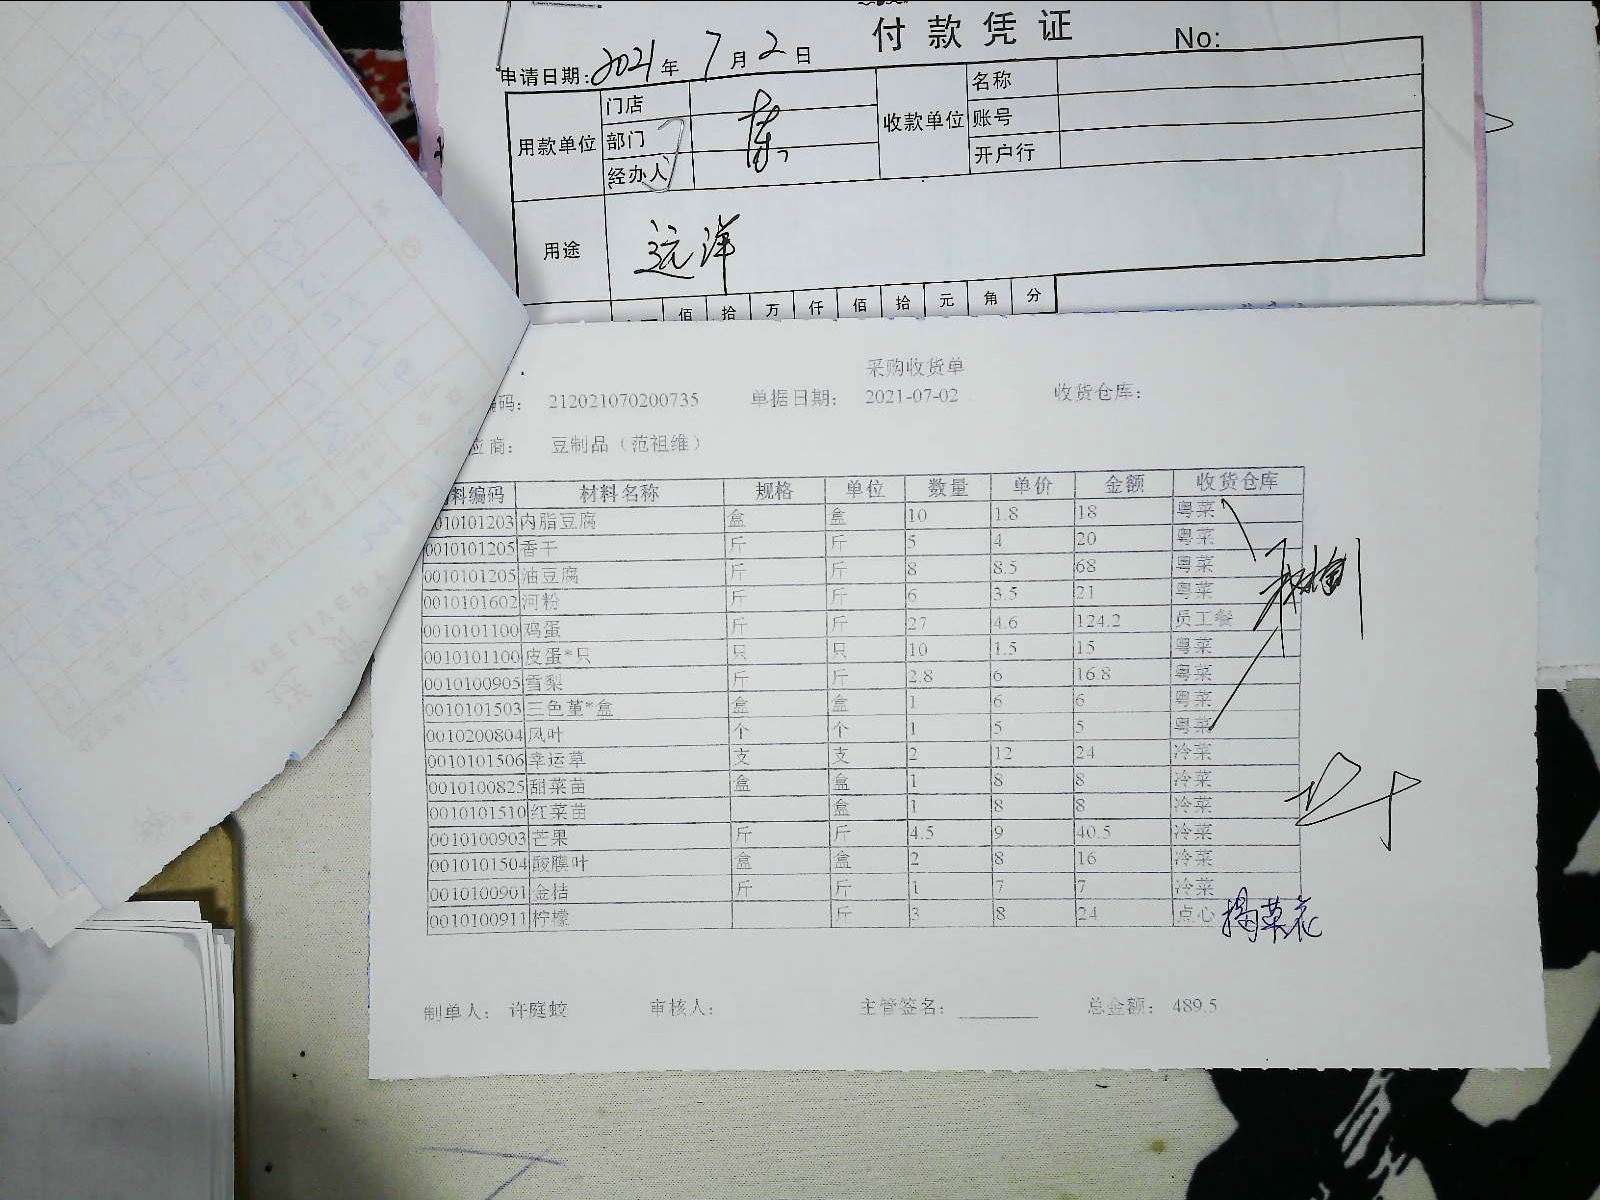 付款凭证 No:
申请日期: 2021年7月2日
用款单位 门店 收款单位 名称
部门 账号
经办人 开户行
用途 远洋
佰 拾 万 仟 佰 拾 元 角 分
采购收货单
编码: 212021070200735 单据日期: 2021-07-02 收货仓库:
应商: 豆制品（范祖维）
料编码 材料名称 规格 单位 数量 单价 金额 收货仓库
0010101203 内脂豆腐 盒 盒 10 1.8 18 粤菜
0010101205 香干 斤 斤 5 4 20 粤菜
0010101205 油豆腐 斤 斤 8 8.5 68 粤菜
0010101602 河粉 斤 斤 6 3.5 21 粤菜
0010101100 鸡蛋 斤 斤 27 4.6 124.2 员工餐
0010101100 皮蛋*只 只 只 10 1.5 15 粤菜
0010100905 雪梨 斤 斤 2.8 6 16.8 粤菜
0010101503 三色堇*盒 盒 盒 1 6 6 粤菜
0010200804 风叶 个 个 1 5 5 粤菜
0010101506 幸运草 支 支 2 12 24 冷菜
0010100825 甜菜苗 盒 盒 1 8 8 冷菜
0010101510 红菜苗 盒 1 8 8 冷菜
0010100903 芒果 斤 斤 4.5 9 40.5 冷菜
0010101504 酸膜叶 盒 盒 2 8 16 冷菜
0010100901 金桔 斤 斤 1 7 7 冷菜
0010100911 柠檬 斤 3 8 24 点心
制单人: 许庭蛟 审核人: 主管签名: 总金额: 489.5